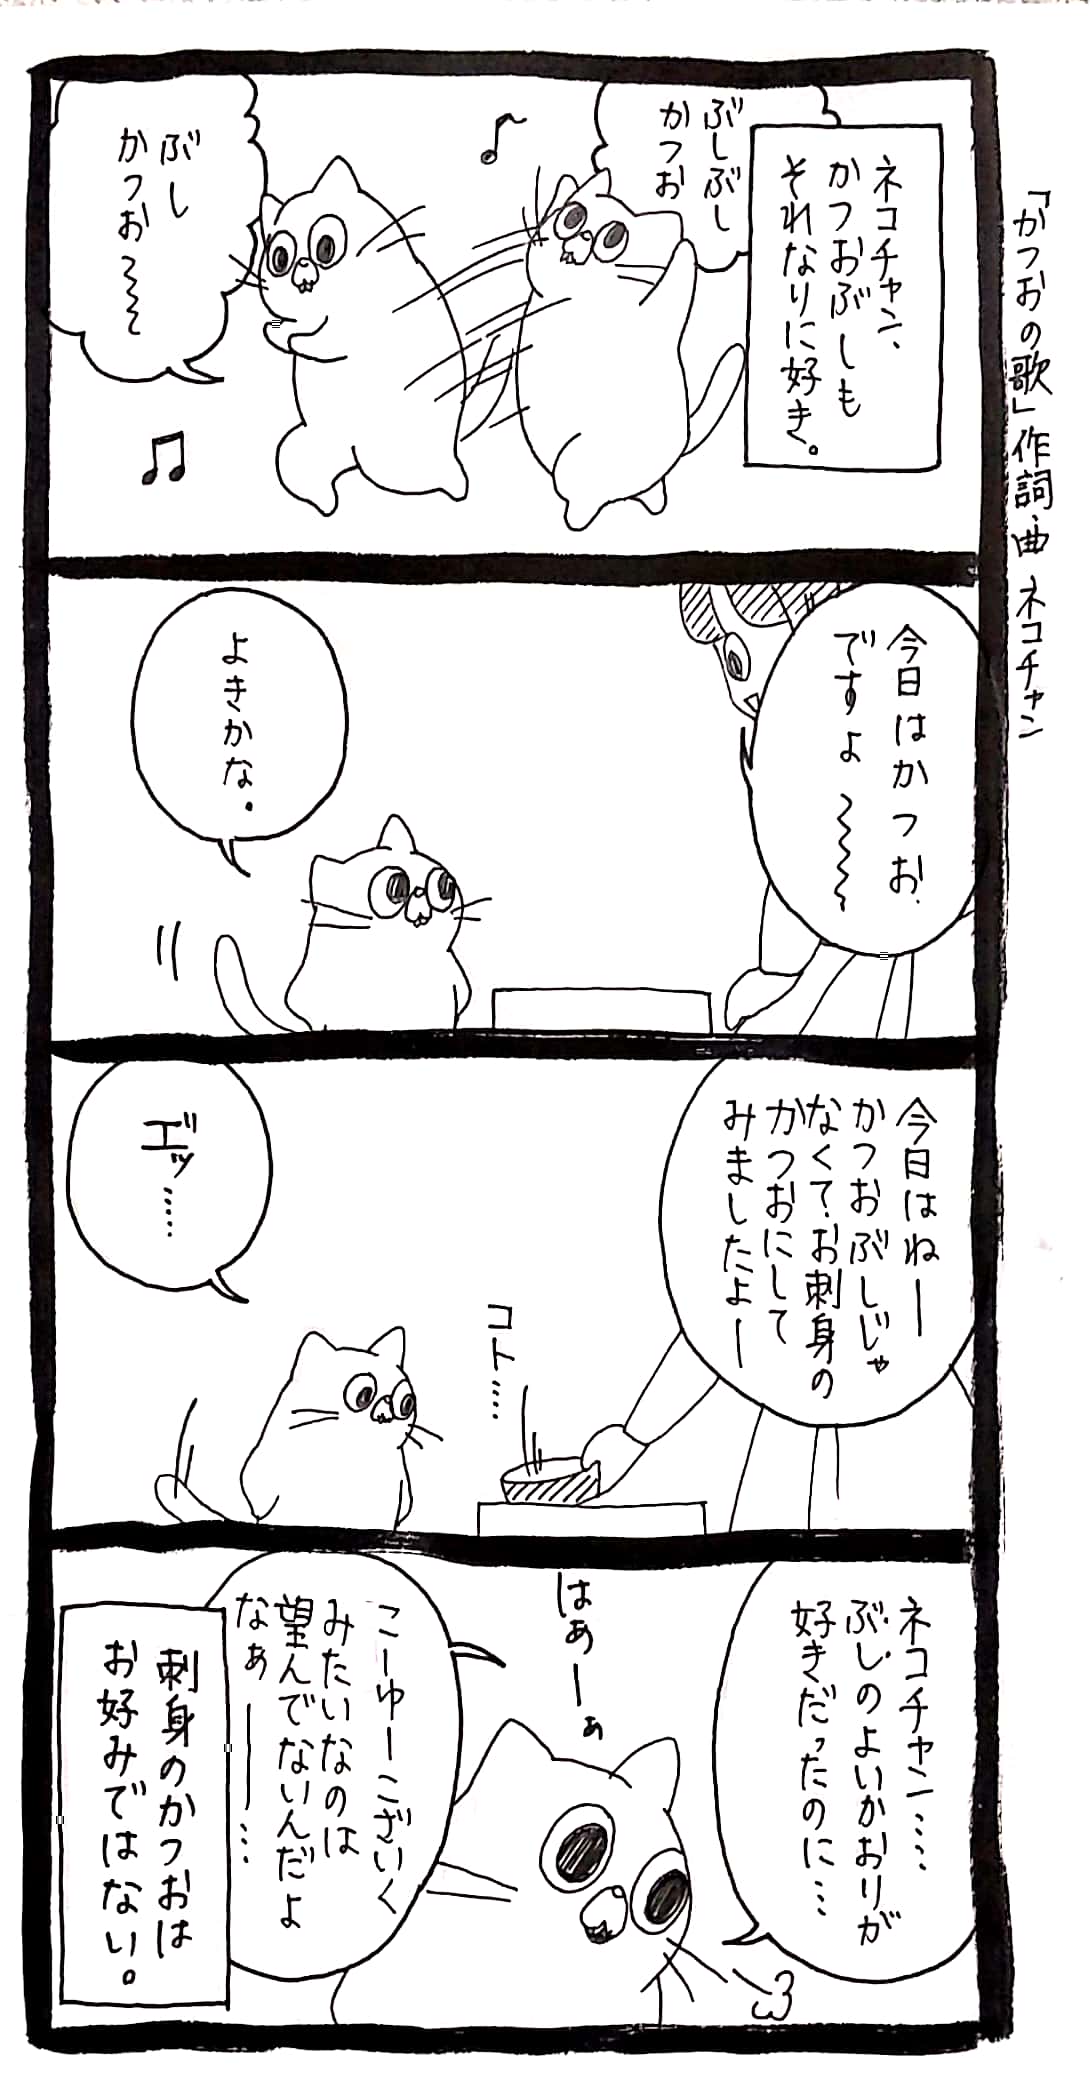 「かつおの歌」作詞、曲 ネコチャン
ネコチャン、
かつおぶしも
それなりに好き。
ぶしぶし
かつお
ぶし
かつお〜〜
今日はかつお
ですよ〜〜〜
よきかな。
今日はねー
かつおぶしじゃ
なくて、お刺身の
かつおにして
みましたよー
コト……
エ゛ッ……
ネコチャン……
ぶしのよいかおりが
好きだったのに…
はあーぁ
こーゆーこざいく
みたいなのは
望んでないんだよ
なぁー…
刺身のかつおは
お好みではない。